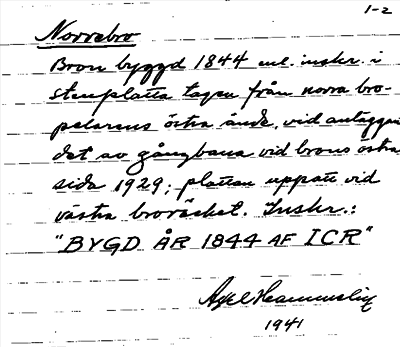 1-2
Norrebro
Bron byggd 1844 enl. inskr. i
stenplatta tagen från norra bro-
pelarens östra ände, vid anläggan-
det av gångbana vid brons östra
sida 1929; plattan uppsatt vid
västra broräcket. Inskr.:
"BYGD ÅR 1844 AF ICR"
Axel
1941